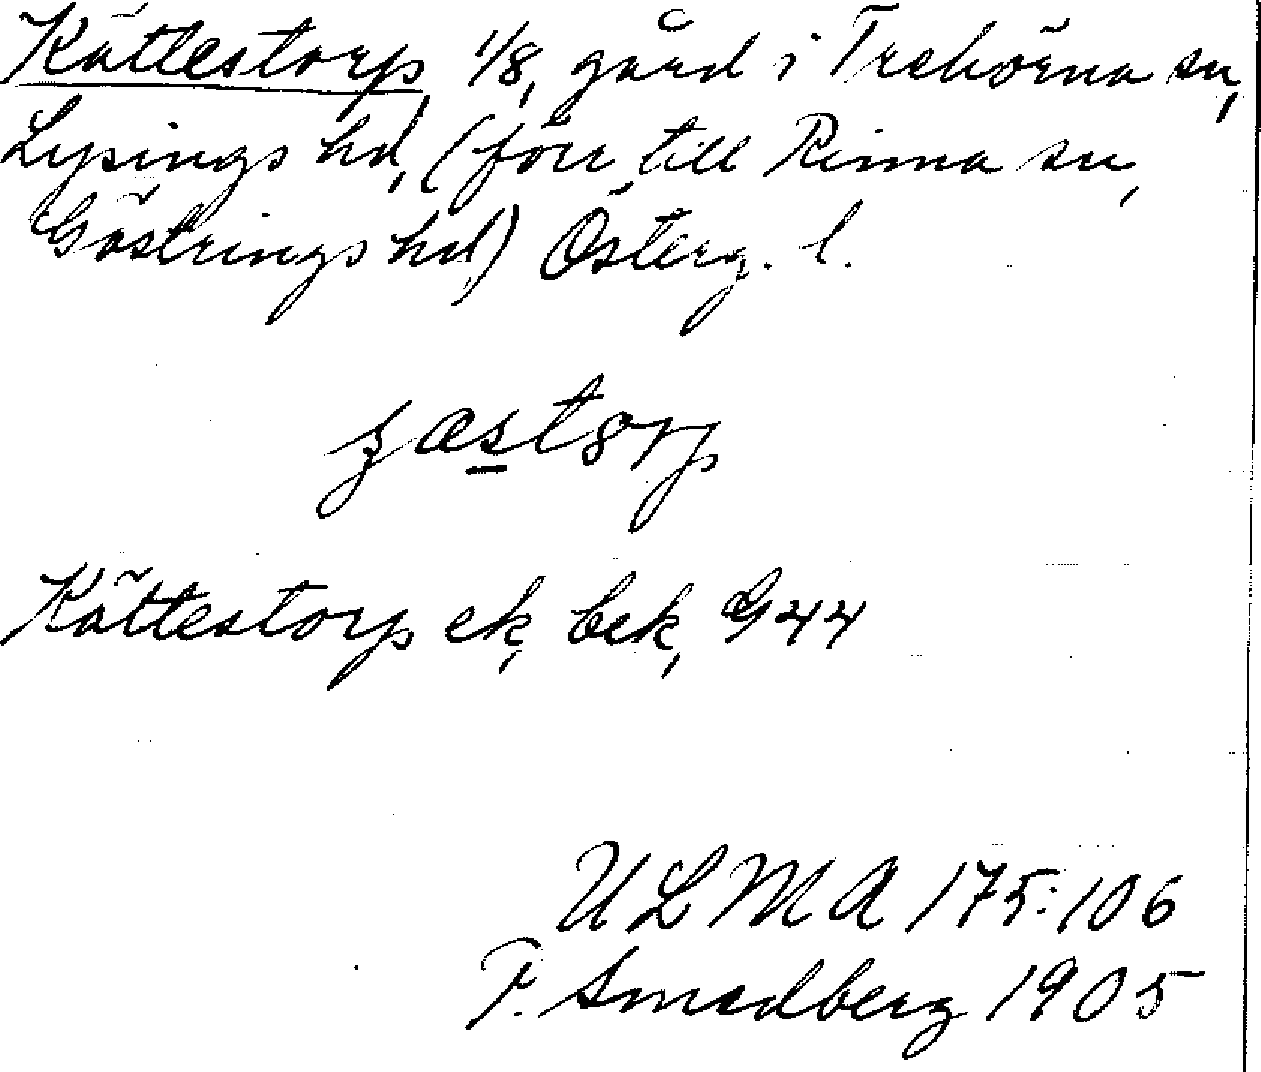 Kättestorp 1/8, gård i Trehörna sn,
Lysings hd, (förr till Rinna sn,
Göstrings hd) Österg. l.
Kättestorp ek, bek, G44
ULMA 175:106
F. Smedberg 1905